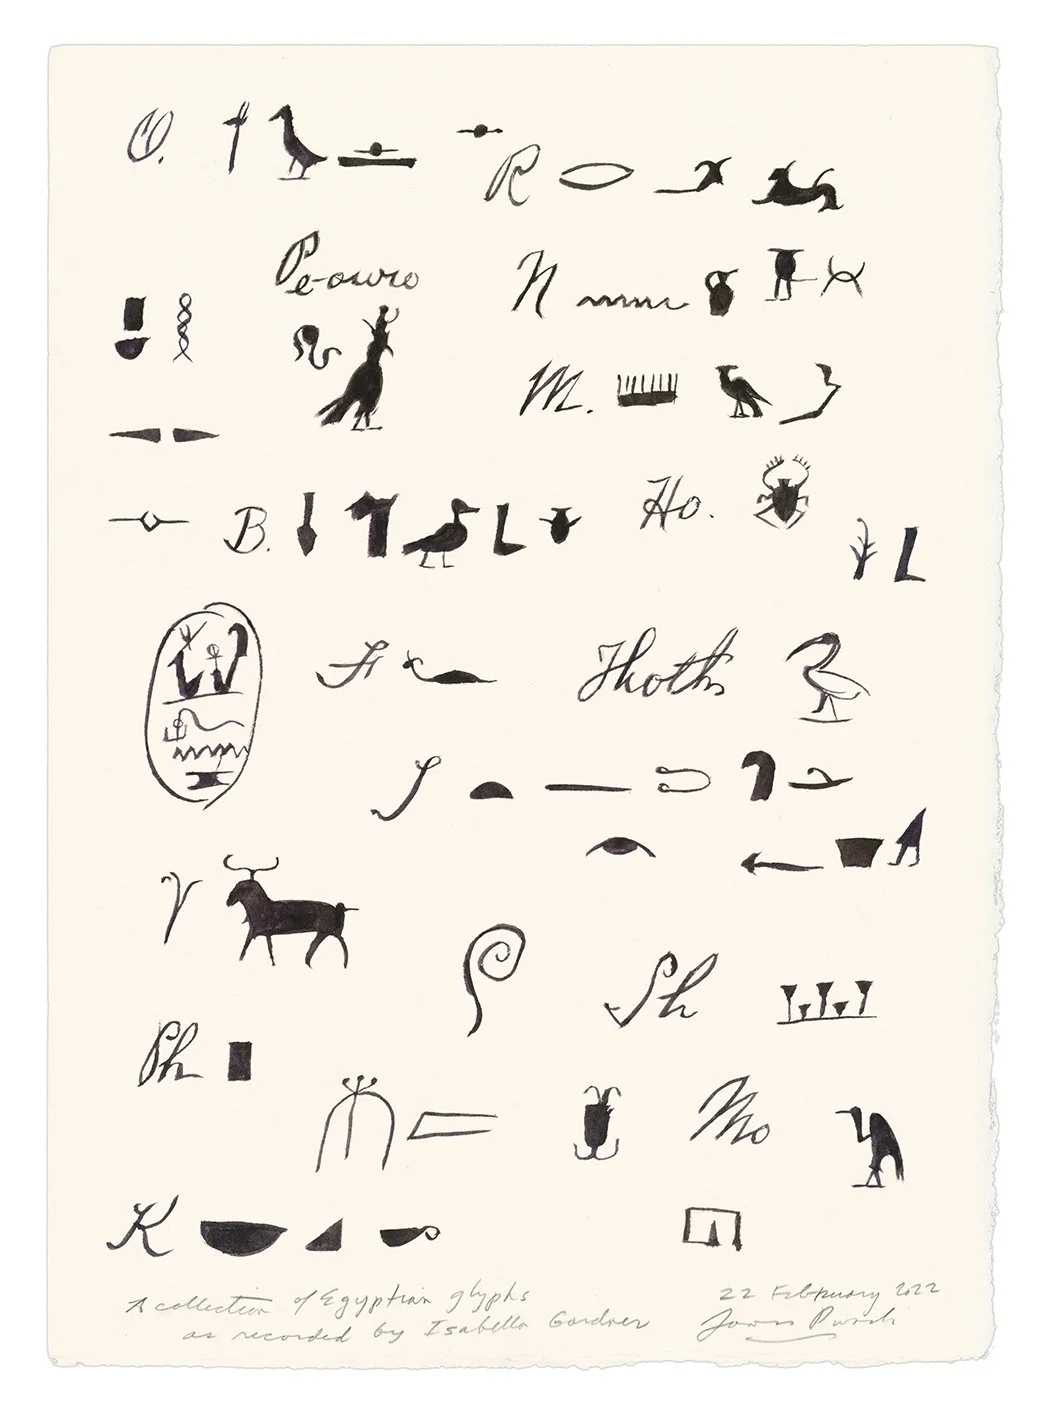 O.
R
Pe-ouro
N
M.
Ho.
B.
F
Thoth
S
V
Sh
Ph
Mo
K
A collection of Egyptian glyphs
as recorded by Isabella Gardner
22 February 2022